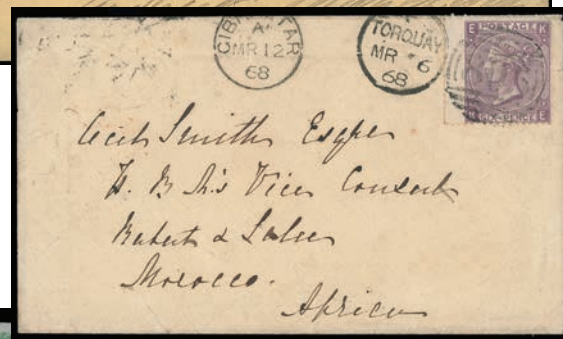 GIBRALTAR
A
MR 12
68
TORQUAY
MR 6
68
E POSTAGE K
K SIX PENCE E
Cecil Smith Esqre
H. B. M's Vice Consul
Rabat & Salee
Morocco.
Africa